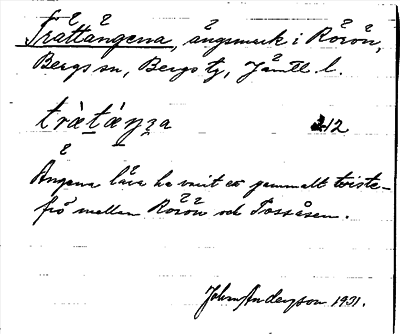 Trättängena, ängsmark i Rörön,
Bergs sn, Bergs tg, Jämtl. l.
trà̱tá̱ṉa 212
Ängena lära ha varit ett gammalt tviste-
frö mellan Rörön och Tossåsen.
John Anderzson 1931.